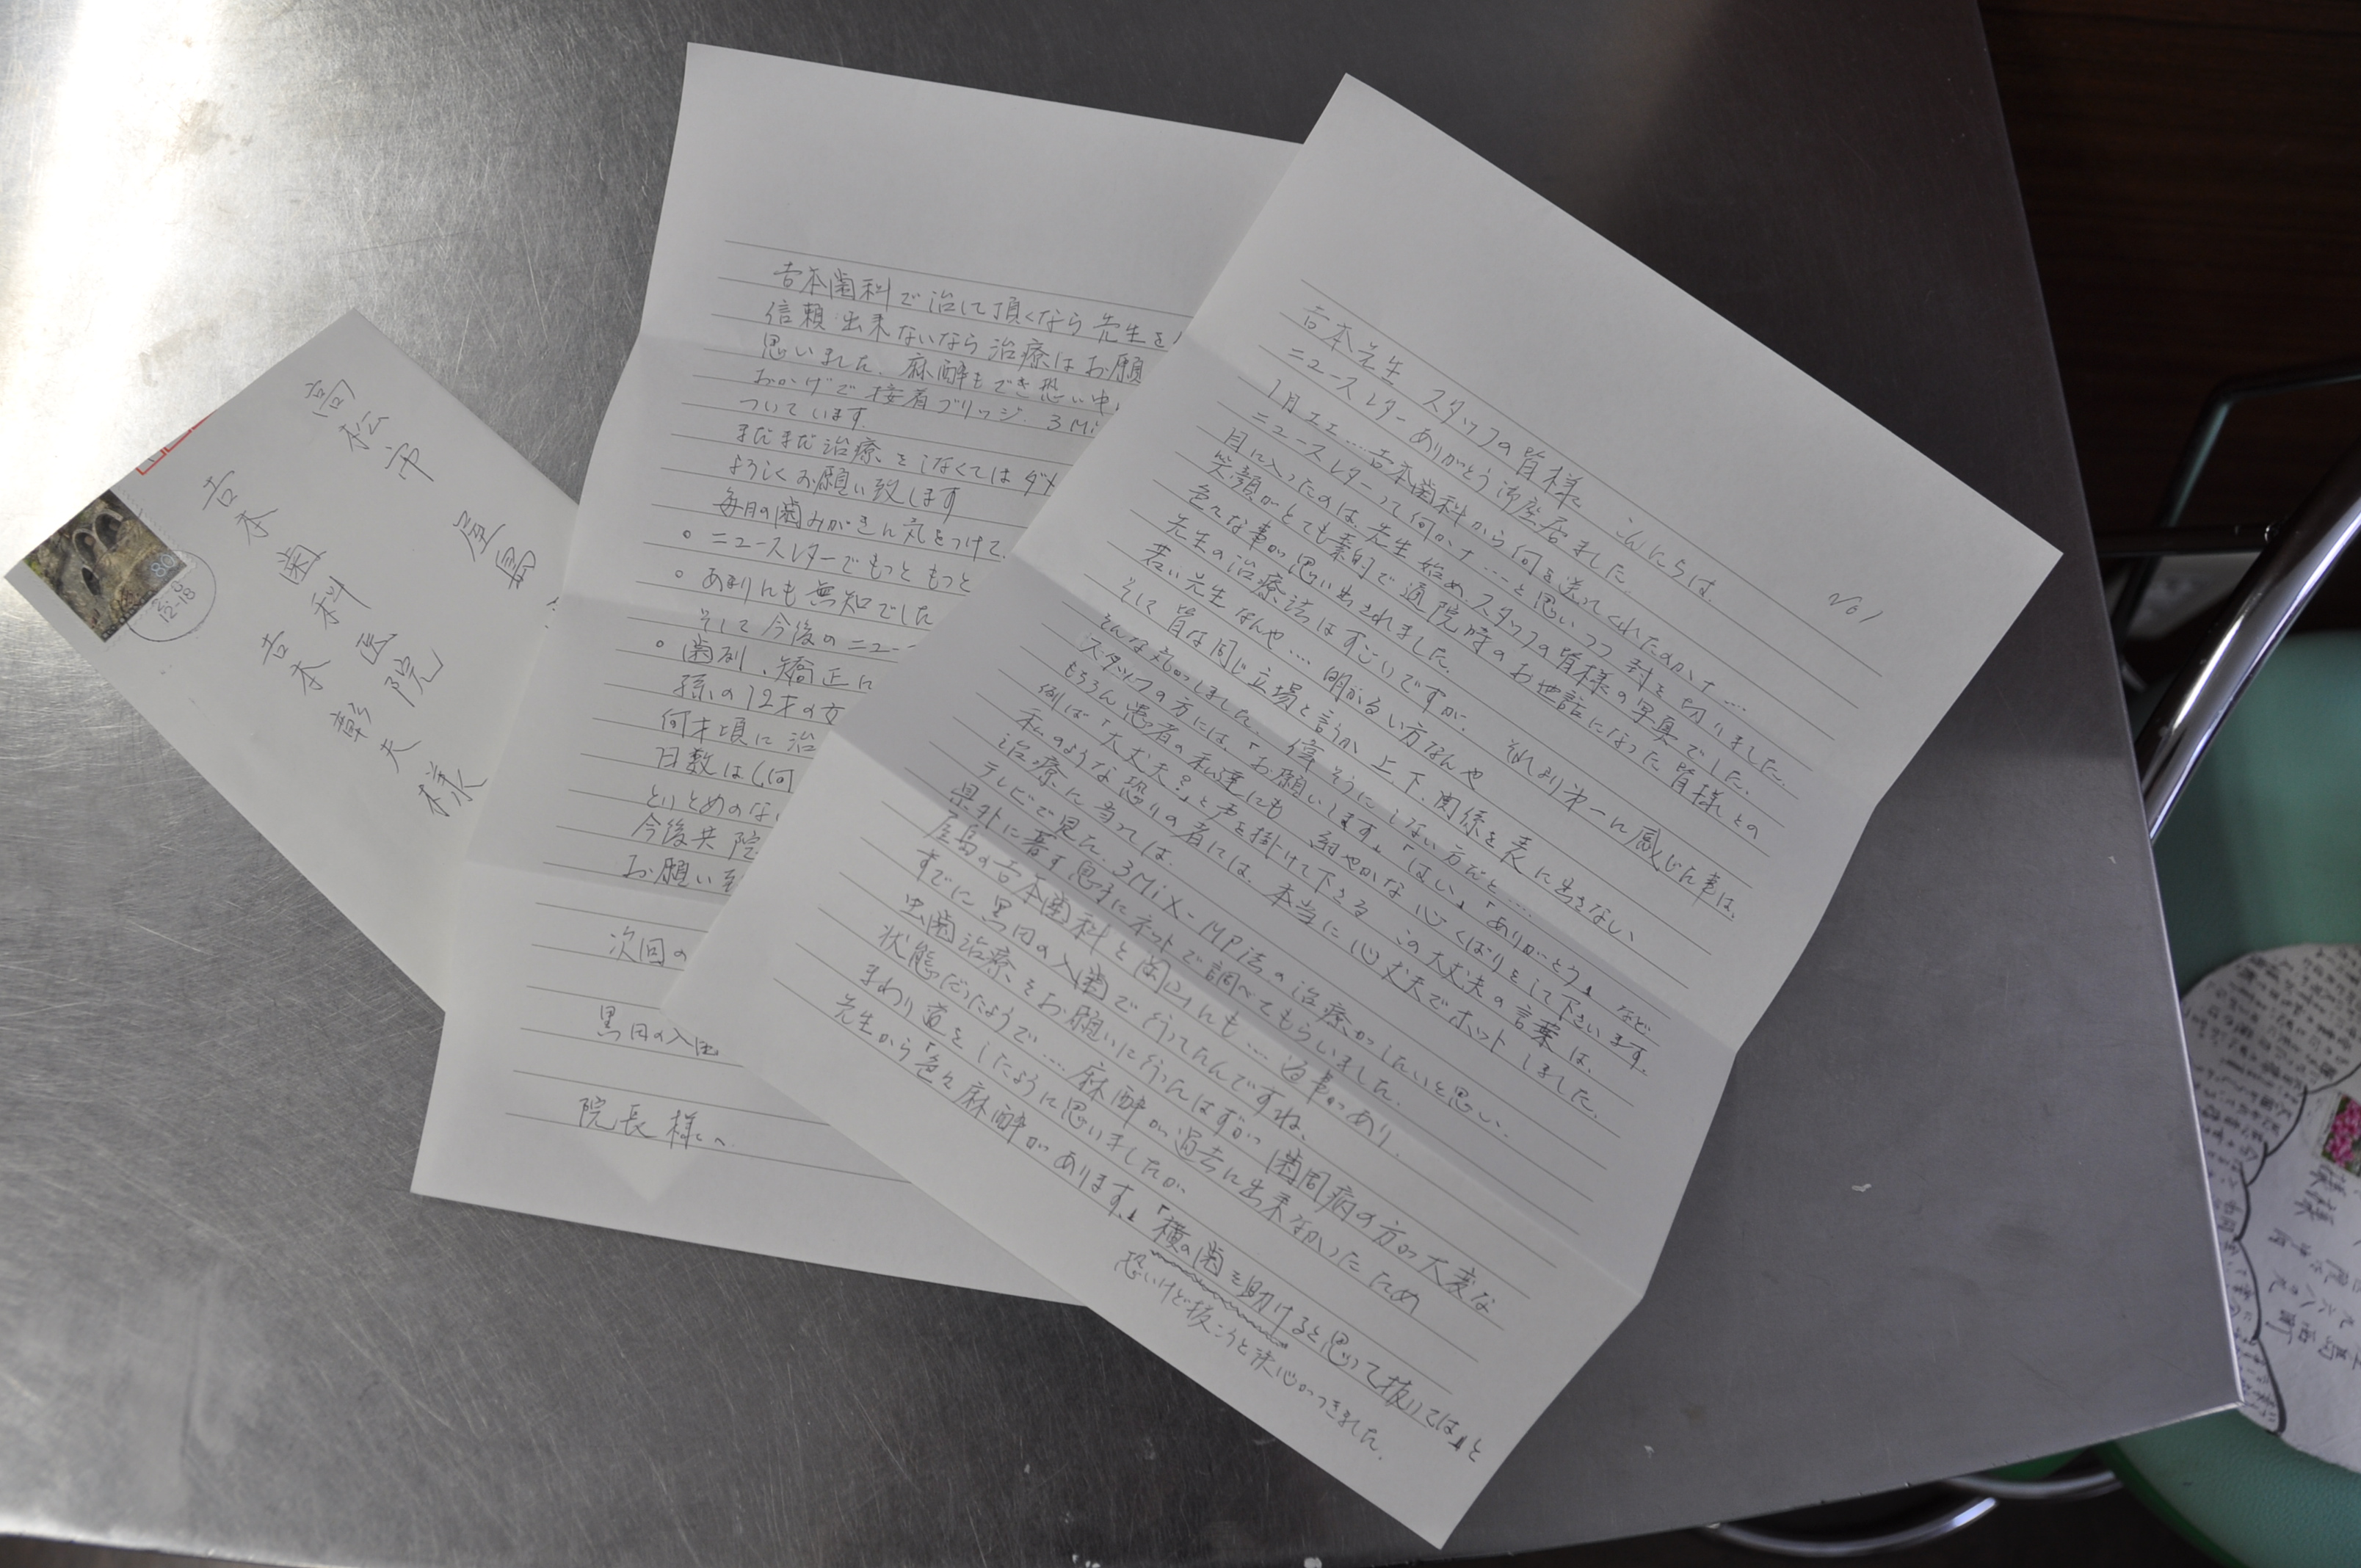 高松市 屋島
吉本歯科医院
吉本彰夫様
80
12-18
No 1
吉本先生 スタッフの皆様 こんにちは。
ニュースレターありがとう御座居ました。
1月エエ……吉本歯科から何を送ってくれたのかナ……
ニュースレターって何かナ……と思いつつ封を切りました。
目に入ったのは、先生始めスタッフの皆様の写真でした。
笑顔がとても素的で通院時のお世話になった皆様との
色々な事が思い出されました。
先生の治療法はすごいですが、それより第一に感じた事は、
若い先生なんや…. 明かるい方なんや
そして皆は同じ立場と言うか上、下、関係を表に出さない
そんな気がしました。偉そうにしない方だと….
スタッフの方には、「お願いします」「はい」「ありがとう」など
もちろん患者の私達にも細やかな心くばりをして下さいます。
例ば「大丈夫?」と声を掛けて下さる この大丈夫の言葉は、
私のような恐りの者には、本当に心丈夫でホットしました。
治療に当っては、
テレビで見た、3Mix-MP法の治療がしたいと思い、
県外に暮す息子にネットで調べてもらいました。
屋島の吉本歯科と
すでに黒田の入歯で行ってたんですね、
虫歯治療をお願いに行ったはずが歯周病の方が大変な
状態だったようで…. 麻酔が過去に出来なかったため
まわり道をしたように思いましたが、
先生から「色々麻酔があります。」「横の歯を助けると思って抜いては」と
恐いけど抜こうと決心がつきました。
吉本歯科で治して頂くなら先生を
信頼出来ないなら治療はお願
思いました、麻酔もでき恐い中
おかげで接着ブリッジ、3Mi
ついています。
まだまだ治療をしなくてはダメ
よろしくお願い致します
毎月の歯みがきに気をつけて、
○ ニュースレターでもっともっと
○ あまりにも無知でした
そして今後のニュー
○ 歯列、矯正に
孫の12才の女
何才頃に治
日数は(何
といとめのな
今後共院
お願い致
次回の
黒田の入
院長様へ